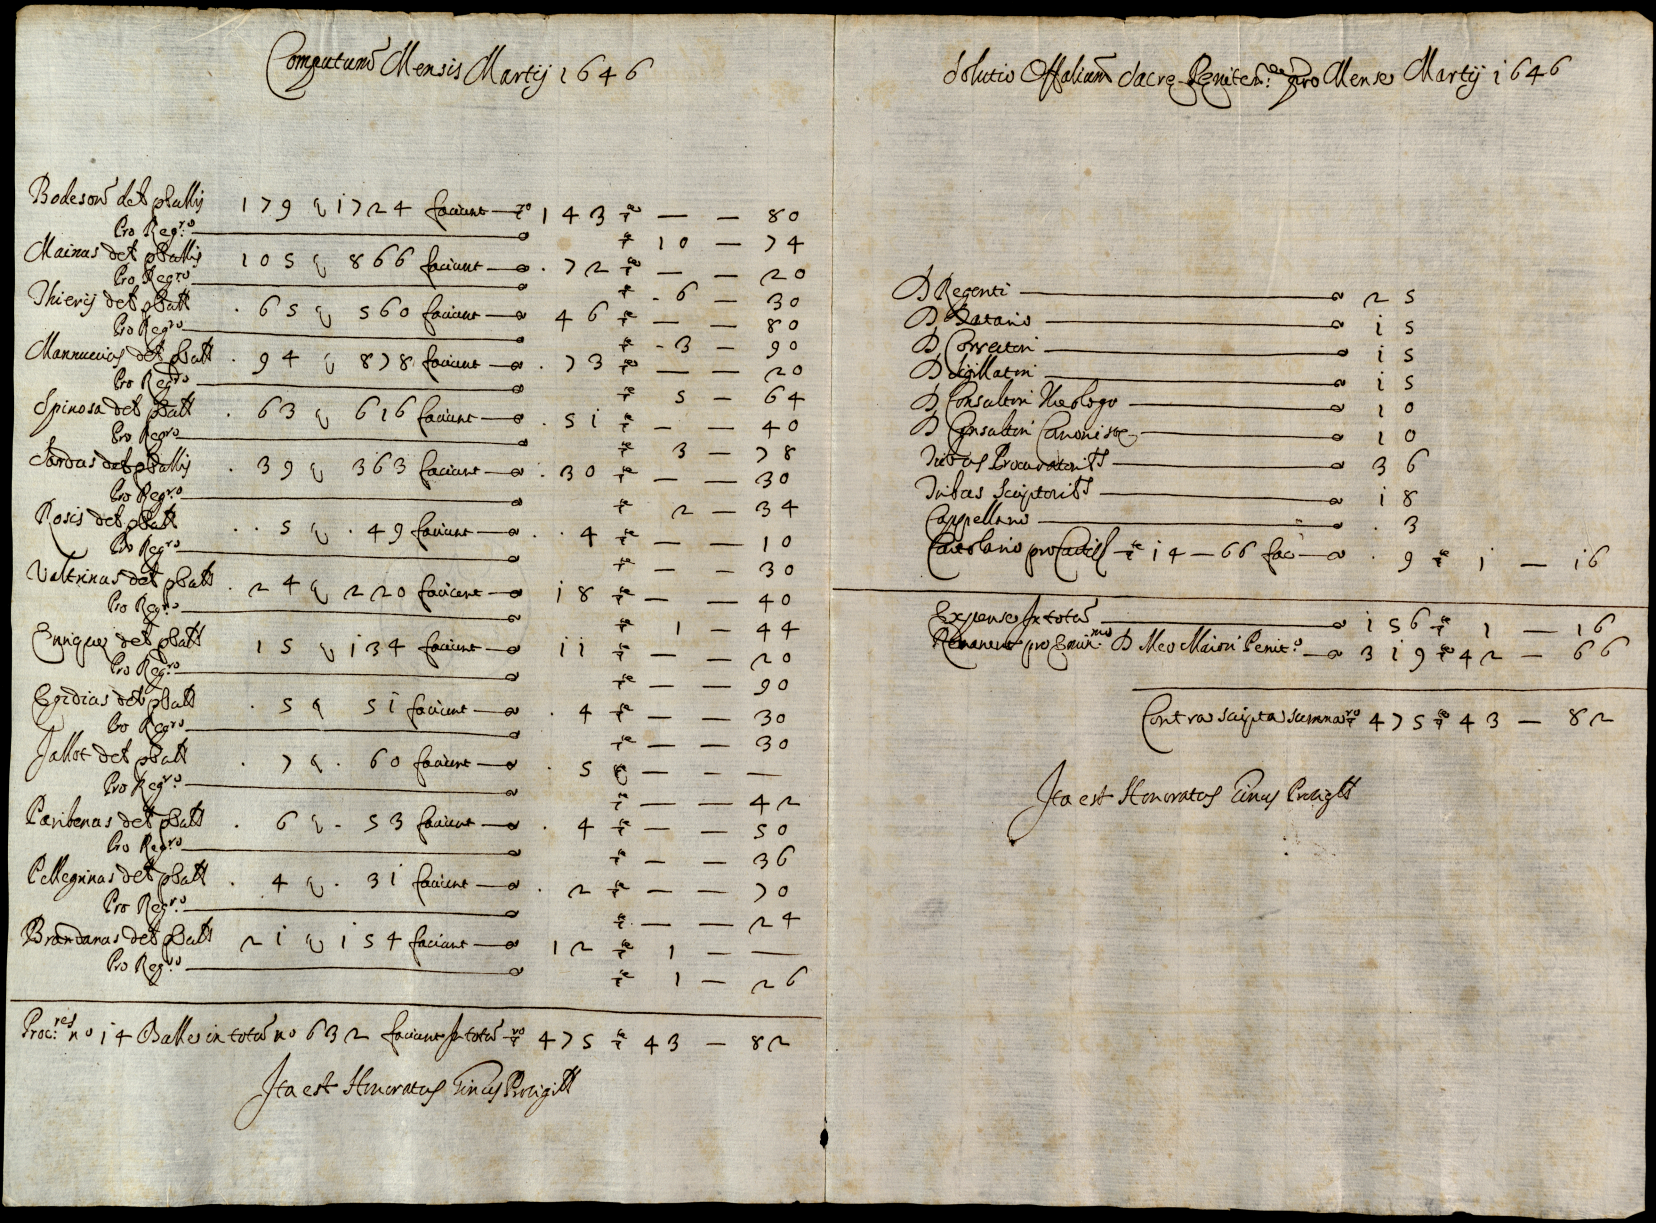 Computum Mensis Martij 1646
Bodeson det p Ballis 179 q 1724 faciunt — ro 143 — — 80
Pro Reg.ro — 10 — 74
Mainas det p Ballis 105 q 866 faciunt — . 72 — — 20
Pro Reg.ro — . 6 — 30
Thierij det p Ball . 65 q 560 faciunt — 46 — — 80
Pro Reg.ro — . 3 — 90
Mannucius det p Ball . 94 q 878 faciunt — . 73 — — 20
Pro Reg.ro — 5 — 64
Spinosa det p Ball . 63 q 616 faciunt — . 51 — — 40
Pro Reg.ro — 3 — 78
Sardus det p Ballis . 39 q 363 faciunt — . 30 — — 30
Pro Reg.ro — 2 — 34
Rosis det p Ball . . 5 q . 49 faciunt — . . 4 — — 10
Pro Reg.ro — — — 30
Valtrinus det p Ball . 24 q 220 faciunt — 18 — — 40
Pro Reg.ro — 1 — 44
Enriquez det p Ball 15 q 134 faciunt — 11 — — 20
Pro Reg.ro — — — 90
Egidias det p Ball . 5 q 51 faciunt — . 4 — — 30
Pro Reg.ro — — — 30
Jallot det p Ball . 7 q . 60 faciunt — . 5 — — —
Pro Reg.ro — — — 42
Paribenus det p Ball . 6 q . 53 faciunt — . 4 — — 50
Pro Reg.ro — — — 36
Pellegrinus det p Ball . 4 q . 31 faciunt — . 2 — — 70
Pro Reg.ro — — — 24
Brandanus det p Ball 21 q 154 faciunt — 12 1 — —
Pro Reg.ro — 1 — 26
Proc.res no 14 Balle in totu no 632 faciunt In totu ro 475 43 — 82
Ita est Honoratus
Solutio Offalium Sacre Peniten: pro Mense Martij 1646
D Regenti — 25
D Datario — 15
D Correctori — 15
D Sigillatori — 15
D Consultori Theologo — 10
D Consultori Canonistae — 10
Procuratoribs — 36
Scriptoribs — 18
Cappellano — . 3
Cartolario pro 14 — 66 fac — . 9 1 — 16
Expense In totu — 156 1 — 16
Remanent pro Emin.mo D Meo Maiori Penit.o — 319 42 — 66
Contra scripta summa ro 475 43 — 82
Ita est Honoratus